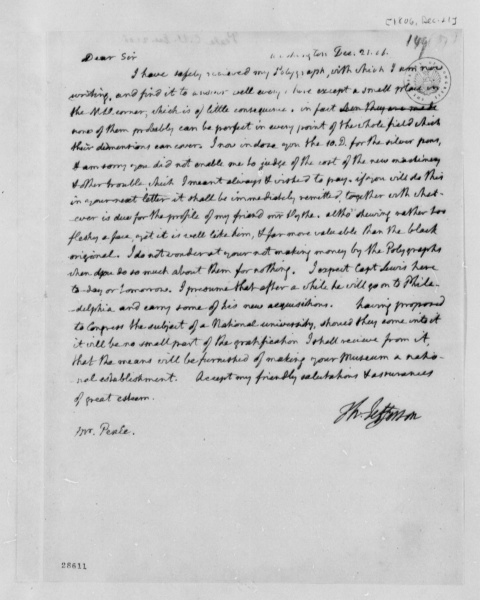 [1806, Dec. 21]
149
Dear Sir Washington Dec. 21. 06.
I have safely recieved my Polygraph, with which I am now
writing, and find it to answer well every where except a small place in
the N.W. corner, which is of little consequence. in fact
none of them probably can be perfect in every point of the whole field which
their dimensions can cover. I now inclose you the 10. D. for the silver pens,
& am sorry you did not enable me to judge of the cost of the new machinery
& other trouble which I meant always & wished to pay. if you will do this
in your next letter it shall be immediately remitted, together with what-
-ever is due for the profile of my friend altho' shewing rather too
fleshy a face, yet it is well like him, & far more valuable than the black
original. I do not wonder at your not making money by the Polygraphs
when you do so much about them for nothing. I expect Capt Lewis here
to-day or tomorrow. I presume that after a while he will go on to Phila-
-delphia and carry some of his new acquisitions. having proposed
to Congress the subject of a National university, should they come into it
it will be no small part of the gratification I shall recieve from it,
that the means will be furnished of making your Museum a natio-
-nal establishment. Accept my friendly salutations & assurances
of great esteem.
Th: Jefferson
Mr. Peale.
28611